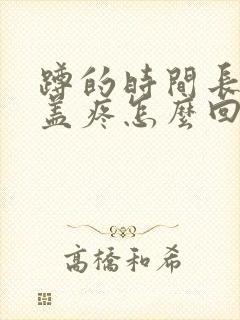 蹲的時間長
盖疼怎麼回
高橋和希